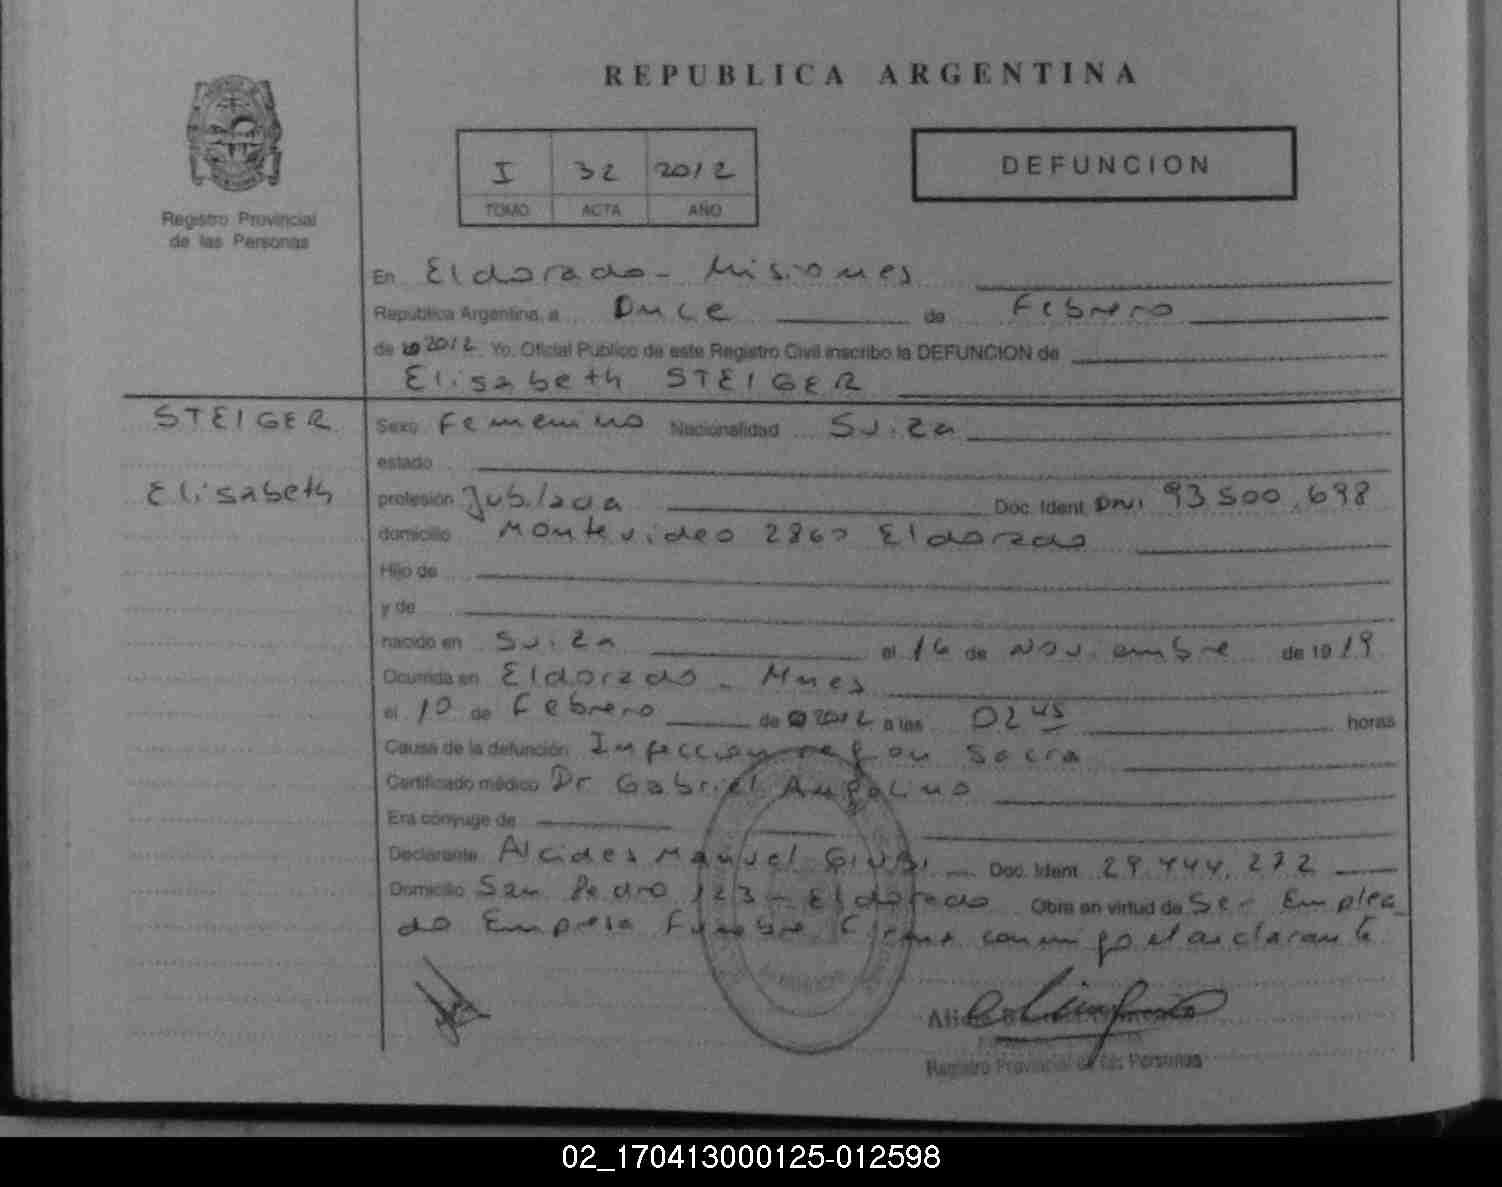 REPUBLICA ARGENTINA
I 32 2012
TOMO ACTA AÑO
DEFUNCION
Registro Provincial
de las Personas
En Eldorado - Misiones
Republica Argentina, a Once de Febrero
de 2012 Yo, Oficial Público de este Registro Civil inscribo la DEFUNCION de
Elisabeth STEIGER
STEIGER
Elisabeth
Sexo Femenino Nacionalidad Suiza
estado
profesión Jubilada Doc. Ident. DNI 93.500.698
domicilio Montevideo 2860 Eldorado
Hijo de
y de
nacido en Suiza el 16 de Noviembre de 1919
Ocurrida en Eldorado - Mnes
el 10 de Febrero de 2012 a las 02 45 horas
Causa de la defunción Infeccion region Sacra
Certificado médico Dr Gabriel Angolino
Era cónyuge de
Declarante Alcides Manuel Doc. Ident. 29.444.272
Domicilio San Pedro 123 - Eldorado Obra en virtud de Ser Emplea
do Empresa Funebre Firma conmigo el declarante
Registro Provincial de las Personas
02_170413000125-012598